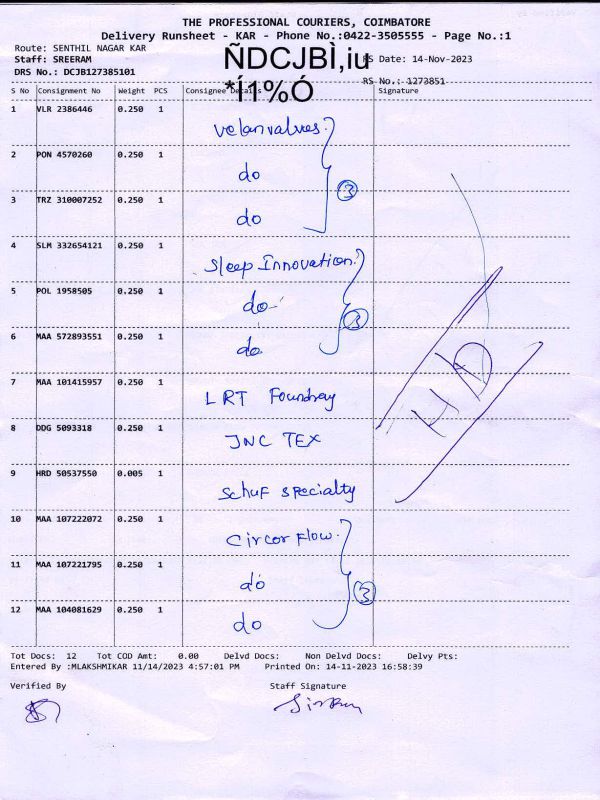 THE PROFESSIONAL COURIERS, COIMBATORE
Delivery Runsheet - KAR - Phone No.:0422-3505555 - Page No.:1
Route: SENTHIL NAGAR KAR
Staff: SREERAM ÑDCJBÌ,iu RS Date: 14-Nov-2023
DRS No.: DCJB127385101 *Í1%Ó RS No.: 1273851
S No Consignment No Weight PCS Consignee Details Signature
1 VLR 2386446 0.250 1 Velanvalves.
2 PON 4570260 0.250 1 do
3
3 TRZ 310007252 0.250 1 do
4 SLM 332654121 0.250 1 Sleep Innovation.
5 POL 1958505 0.250 1 do
3
6 MAA 572893551 0.250 1 do
HD
7 MAA 101415957 0.250 1 LRT Foundray
8 DDG 5093318 0.250 1 JNC TEX
9 HRD 50537550 0.005 1 Schuf specialty
10 MAA 107222072 0.250 1 Circor flow.
11 MAA 107221795 0.250 1 do
3
12 MAA 104081629 0.250 1 do
Tot Docs: 12 Tot COD Amt: 0.00 Delvd Docs: Non Delvd Docs: Delvy Pts:
Entered By :MLAKSHMIKAR 11/14/2023 4:57:01 PM Printed On: 14-11-2023 16:58:39
Verified By Staff Signature